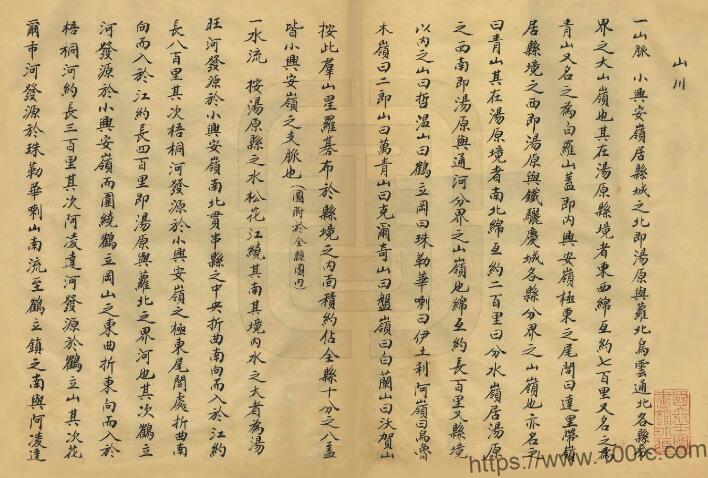 山川
一山脈 小興安嶺居縣城之北即湯原與蘿北烏雲通北各縣分
界之大山嶺也其在湯原縣境者東西綿亙約七百里又名之為
青山又名之為白羅山蓋即內興安嶺極東之尾閭曰達里帶嶺
居縣境之西即湯原與鐵驪慶城各縣分界之山嶺也亦名之
曰青山其在湯原境者南北綿亙約二百里曰分水嶺居湯原
之西南即湯原與通河分界之山嶺也綿亙約長百里又縣境
以內之山曰哲温山曰鶴立岡曰珠勒華喇曰伊土利阿嶺曰烏魯
木嶺曰二郎山曰萬青山曰克爾奇山曰盤嶺曰白蘭山曰沃賀山
按此羣山星羅碁布於縣境之內面積約佔全縣十分之八蓋
皆小興安嶺之支脈也(圖附於全縣圖內
一水流 按湯原縣之水松花江繞其南其境內水之大者為湯
旺河發源於小興安嶺南北貫串縣之中央折曲南向而入於江約
長八百里其次梧桐河發源於小興安嶺之極東尾閭處折曲南
向而入於江約長四百里即湯原與蘿北之界河也其次鶴立
河發源於小興安嶺而圍繞鶴立岡山之東曲折東向而入於
梧桐河約長三百里其次阿凌達河發源於鶴立山其次花
爾布河發源於珠勒華喇山南流至鶴立鎮之南與阿凌達
https://www.100tc.com